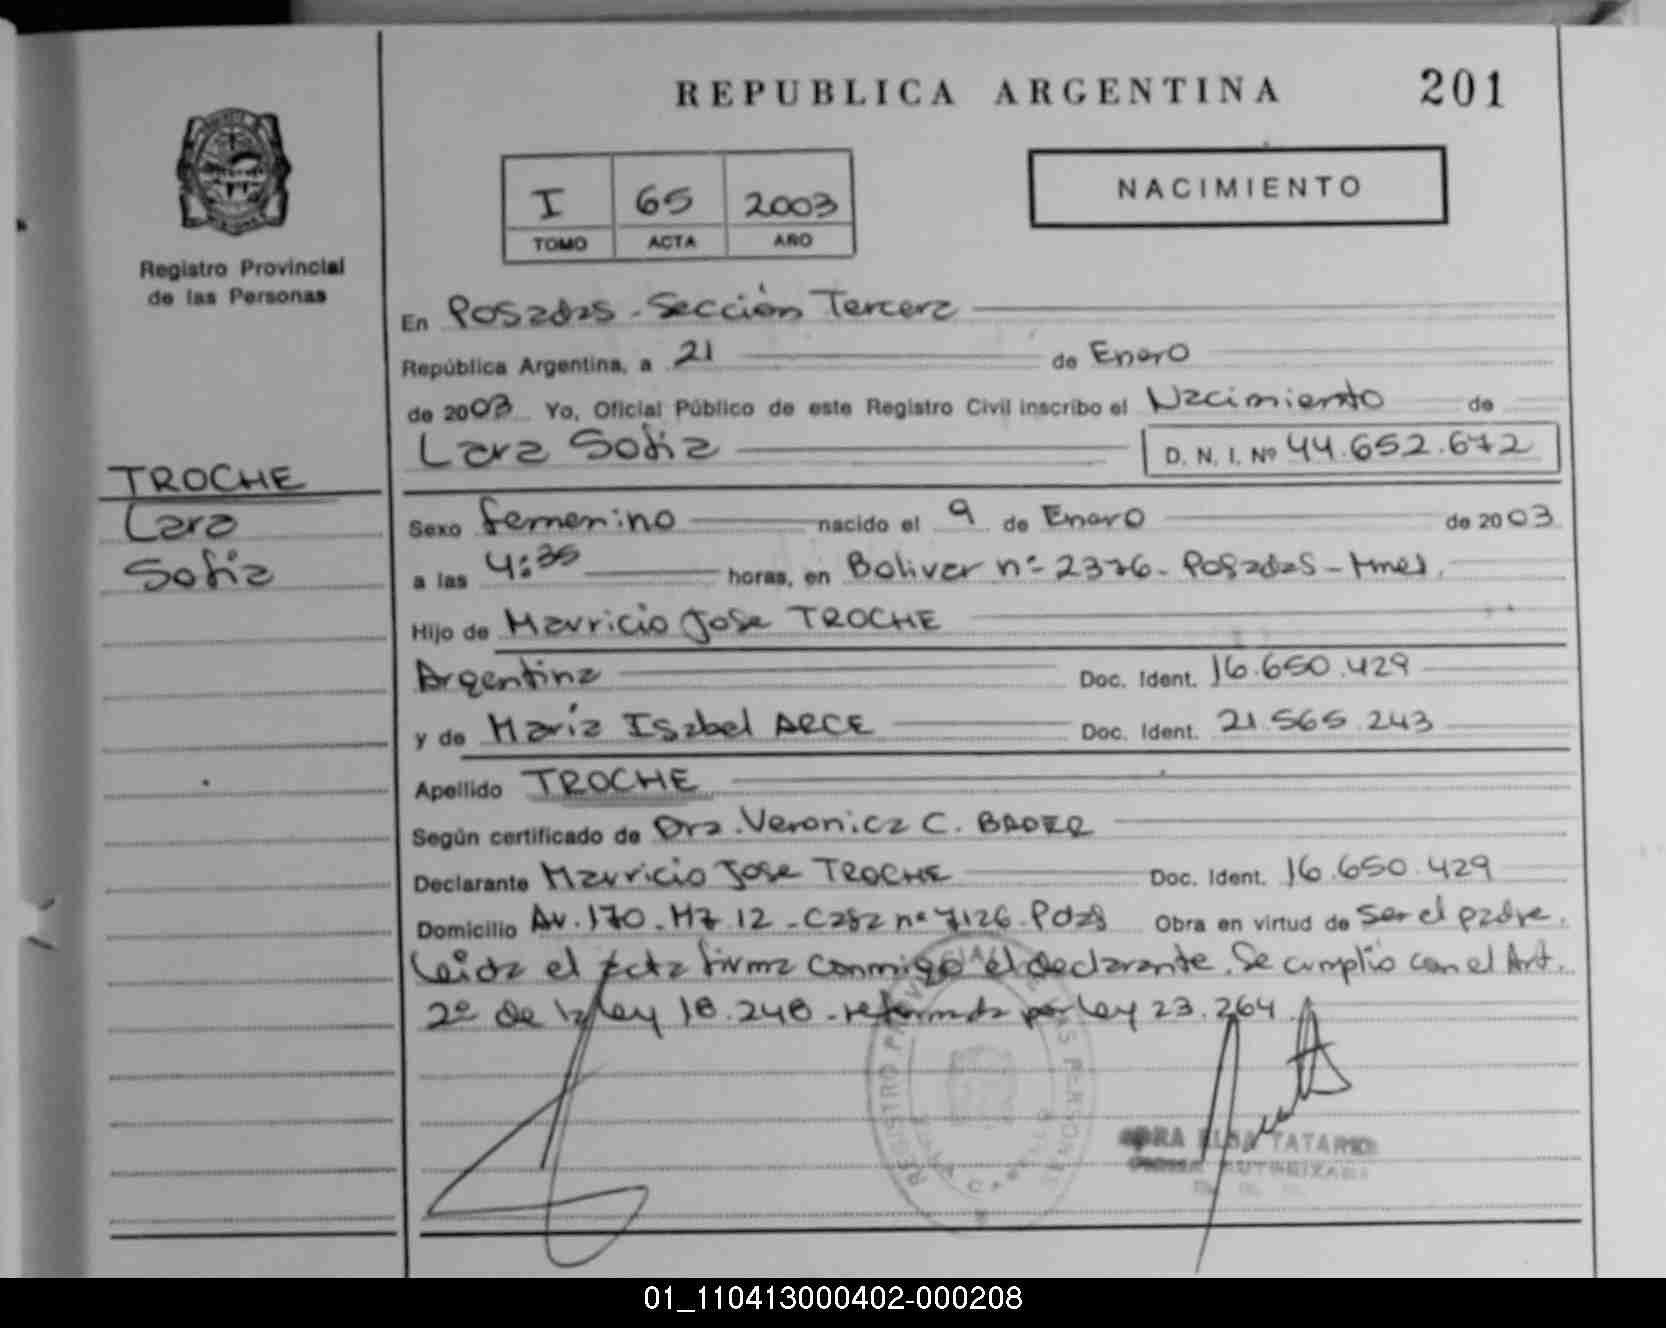 REPUBLICA ARGENTINA 201
I 65 2003
TOMO ACTA AÑO
NACIMIENTO
Registro Provincial
de las Personas
TROCHE
Lara
Sofia
En Posadas - Sección Tercera
República Argentina, a 21 de Enero
de 2003 Yo, Oficial Público de este Registro Civil inscribo el Nacimiento de
Lara Sofia D. N. I. Nº 44.652.672
Sexo femenino nacido el 9 de Enero de 2003
a las 4:35 horas, en Bolivar nº 2376 - Posadas - Mnes.
Hijo de Mauricio Jose TROCHE
Argentina Doc. Ident. 16.650.429
y de Maria Isabel ARCE Doc. Ident. 21.565.243
Apellido TROCHE
Según certificado de Dra. Veronica C.
Declarante Mauricio Jose TROCHE Doc. Ident. 16.650.429
Domicilio Av. 170 - Mz 12 - Casa nº 7126 - Pdas Obra en virtud de ser el padre.
Leida el acta firma conmigo el declarante. Se cumplio con el Art.
2º de la ley 18.248 - reformada por ley 23.264
REGISTRO PROVINCIAL DE LAS PERSONAS
TATARIN
AUTORIZADA
01_110413000402-000208